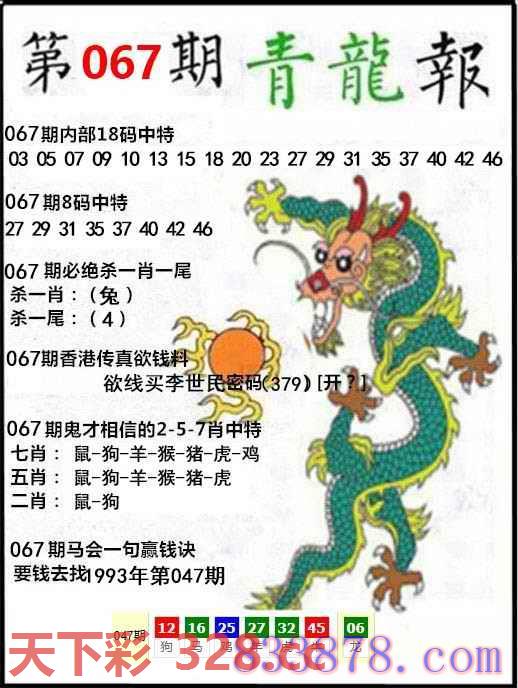 第067期青龍報
067期内部18码中特
03 05 07 09 10 13 15 18 20 23 27 29 31 35 37 40 42 46
067期8码中特
27 29 31 35 37 40 42 46
067期必绝杀一肖一尾
杀一肖：（兔）
杀一尾：（4）
067期香港传真欲钱料
欲线买李世民密码(379)[开？]
067期鬼才相信的2-5-7肖中特
七肖： 鼠-狗-羊-猴-猪-虎-鸡
五肖： 鼠-狗-羊-猴-猪-虎
二肖： 鼠-狗
067期马会一句赢钱诀
要钱去找1993年第047期
047期 12 16 25 27 32 45 06
狗 马 鸡 羊 虎 牛 龙
天下彩 328333878.com